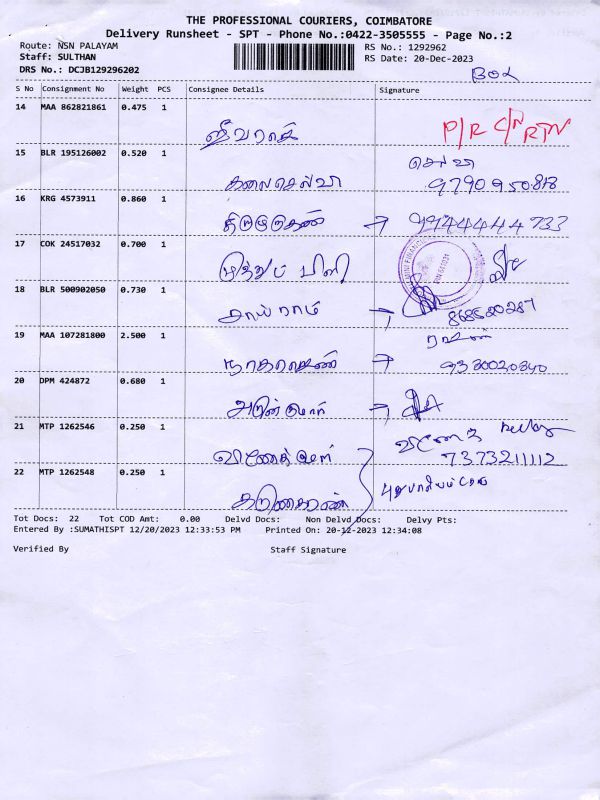 THE PROFESSIONAL COURIERS, COIMBATORE
Delivery Runsheet - SPT - Phone No.:0422-3505555 - Page No.:2
Route: NSN PALAYAM RS No.: 1292962
Staff: SULTHAN RS Date: 20-Dec-2023
DRS No.: DCJB129296202 BOX
S No Consignment No Weight PCS Consignee Details Signature
14 MAA 862821861 0.475 1
ஜீவராஜ் P/R C/N RTN
15 BLR 195126002 0.520 1 செல்வி
கலைசெல்வி 9790950818
16 KRG 4573911 0.860 1
→ 9944444733
17 COK 24517032 0.700 1
18 BLR 500902050 0.730 1
சாய்ராம் →
19 MAA 107281800 2.500 1
→ 9330020840
20 DPM 424872 0.680 1
அருண்குமார் →
21 MTP 1262546 0.250 1
7373211112
22 MTP 1262548 0.250 1
Tot Docs: 22 Tot COD Amt: 0.00 Delvd Docs: Non Delvd Docs: Delvy Pts:
Entered By :SUMATHISPT 12/20/2023 12:33:53 PM Printed On: 20-12-2023 12:34:08
Verified By Staff Signature